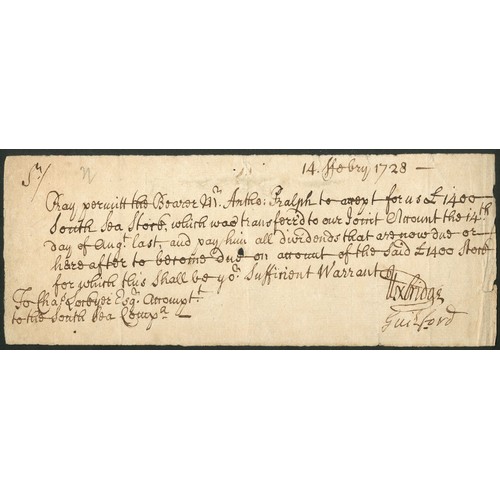 14. ffebry 1728 —
Sr/
Pray permitt the Bearer Mr. Antho: Fralph to acept for us £1400
South Sea Stock, which was transferr'd to our Joint Acount the 14th
day of Augt. last, and pay him all dividends that are now due or
here after to become Due on account of the Said £1400 Stock
for which this shall be yor. Sufficient Warrant
Uxbridge
To Chas. Lockyer Esqr. Accompt.
Guilford
to the South Sea Compa.